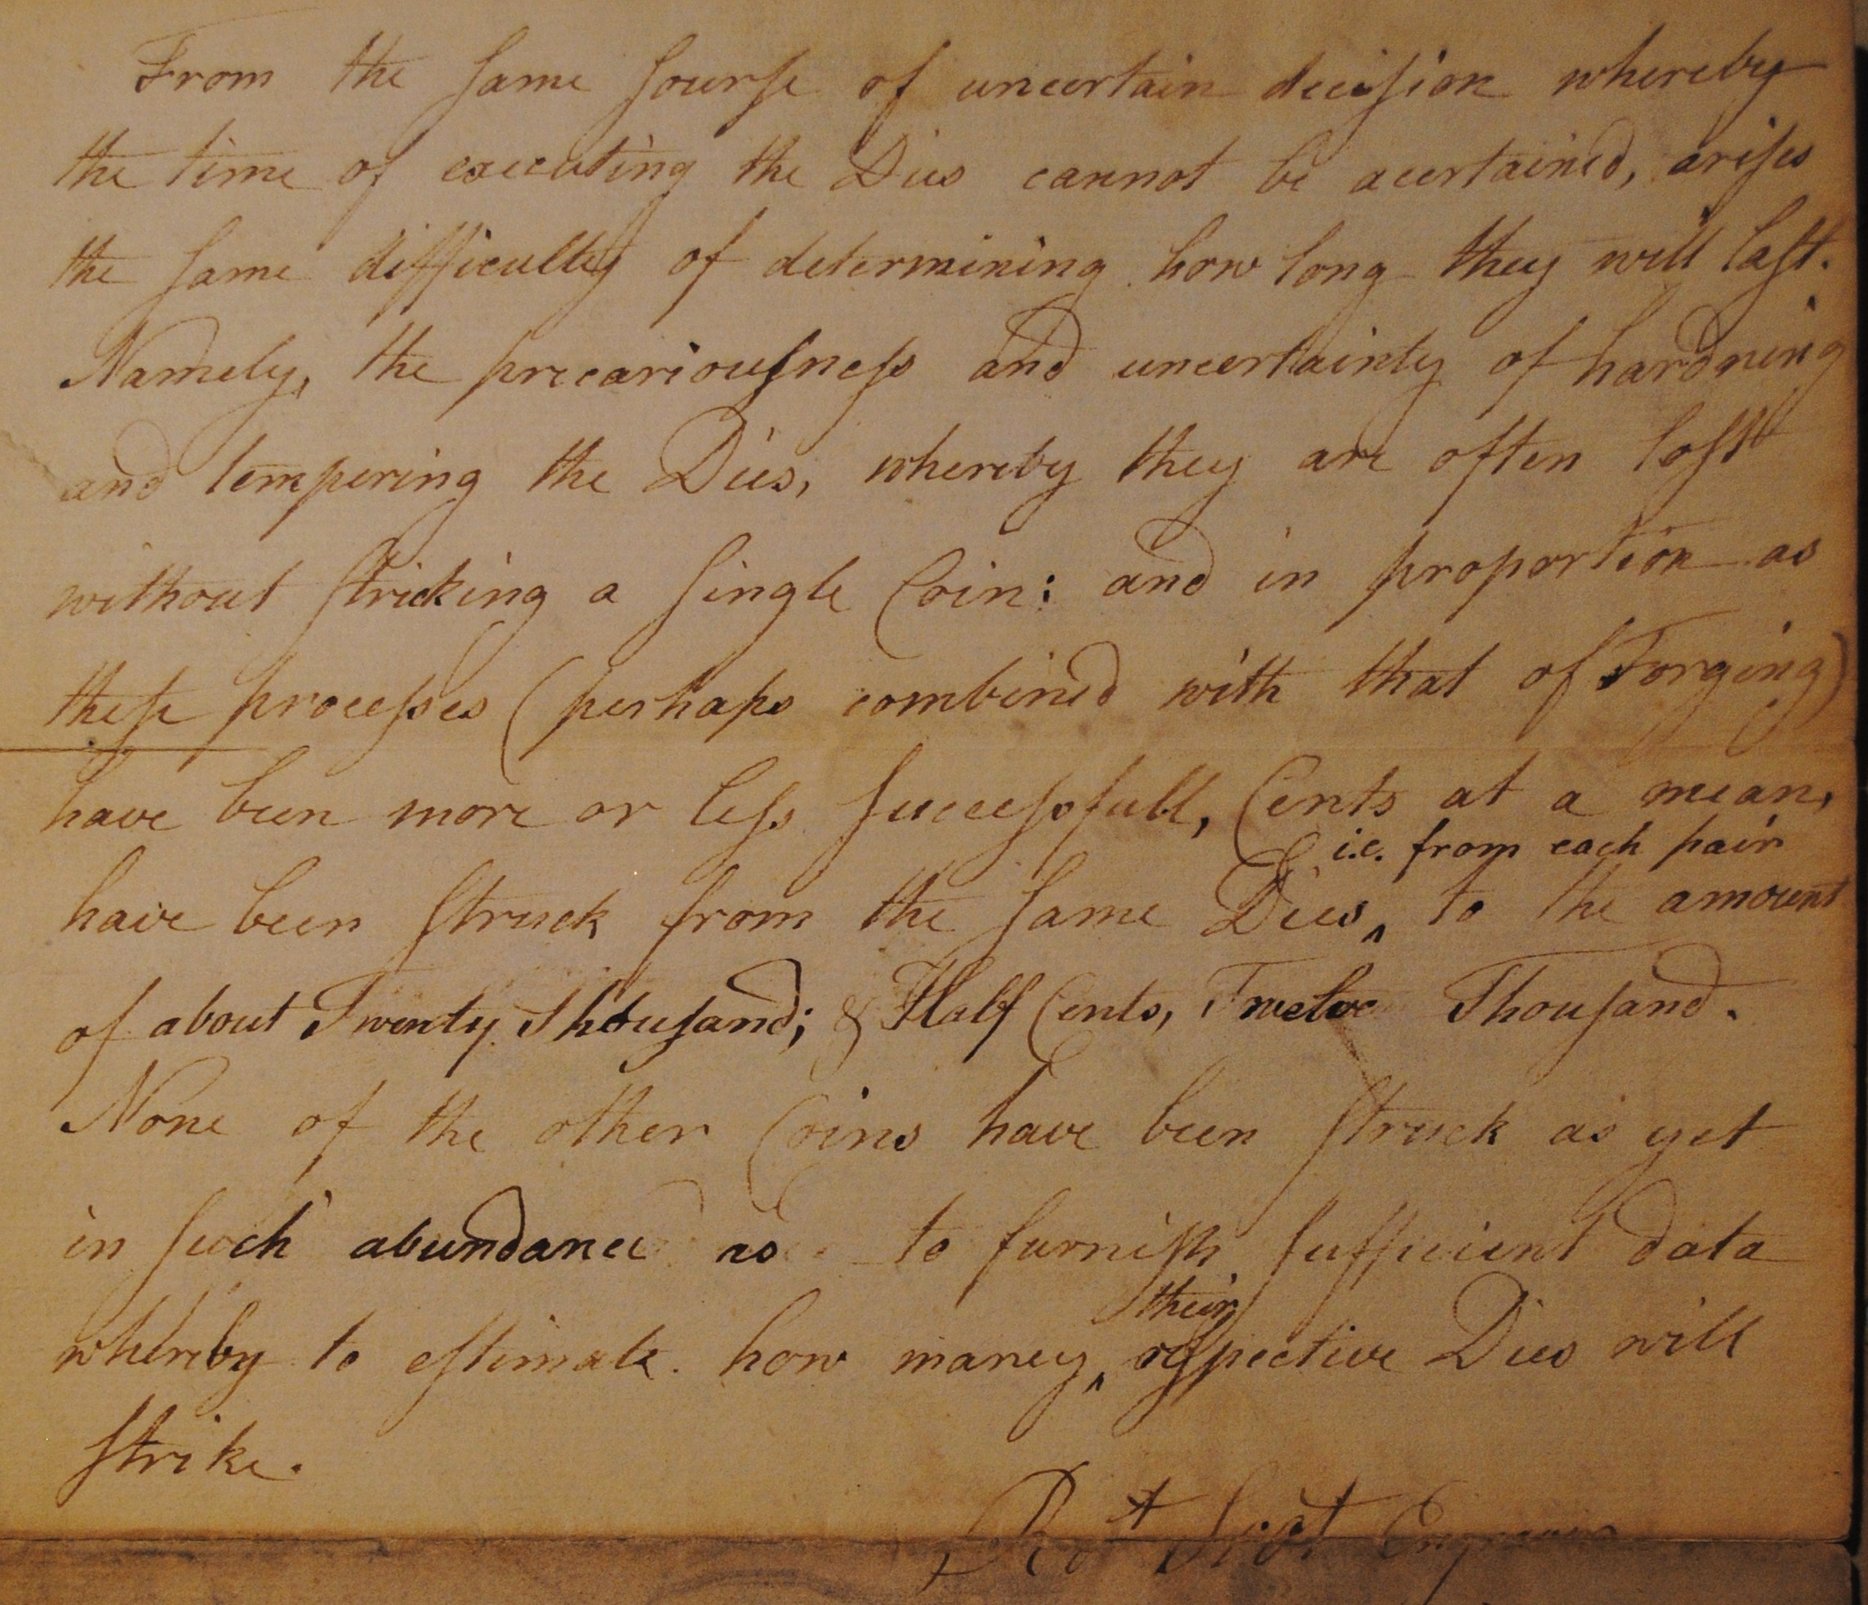 From the same sourse of uncertain decision whereby
the time of executing the Dies cannot be acertained, arises
the same difficulty of determining how long they will last.
Namely, the precariousness and uncertainty of hardning
and tempering the Dies, whereby they are often lost
without stricking a single Coin: and in proportion as
these processes (perhaps combined with that of Forging)
have been more or less successfull, Cents at a mean,
i.e. from each pair
have been struck from the same Dies, to the amount
of about Twenty Thousand; & Half Cents, Twelve Thousand.
None of the other Coins have been struck as yet
in such abundance as to furnish sufficient data
their
whereby to estimate how maney respective Dies will
strike.
Robt Scot Engraver